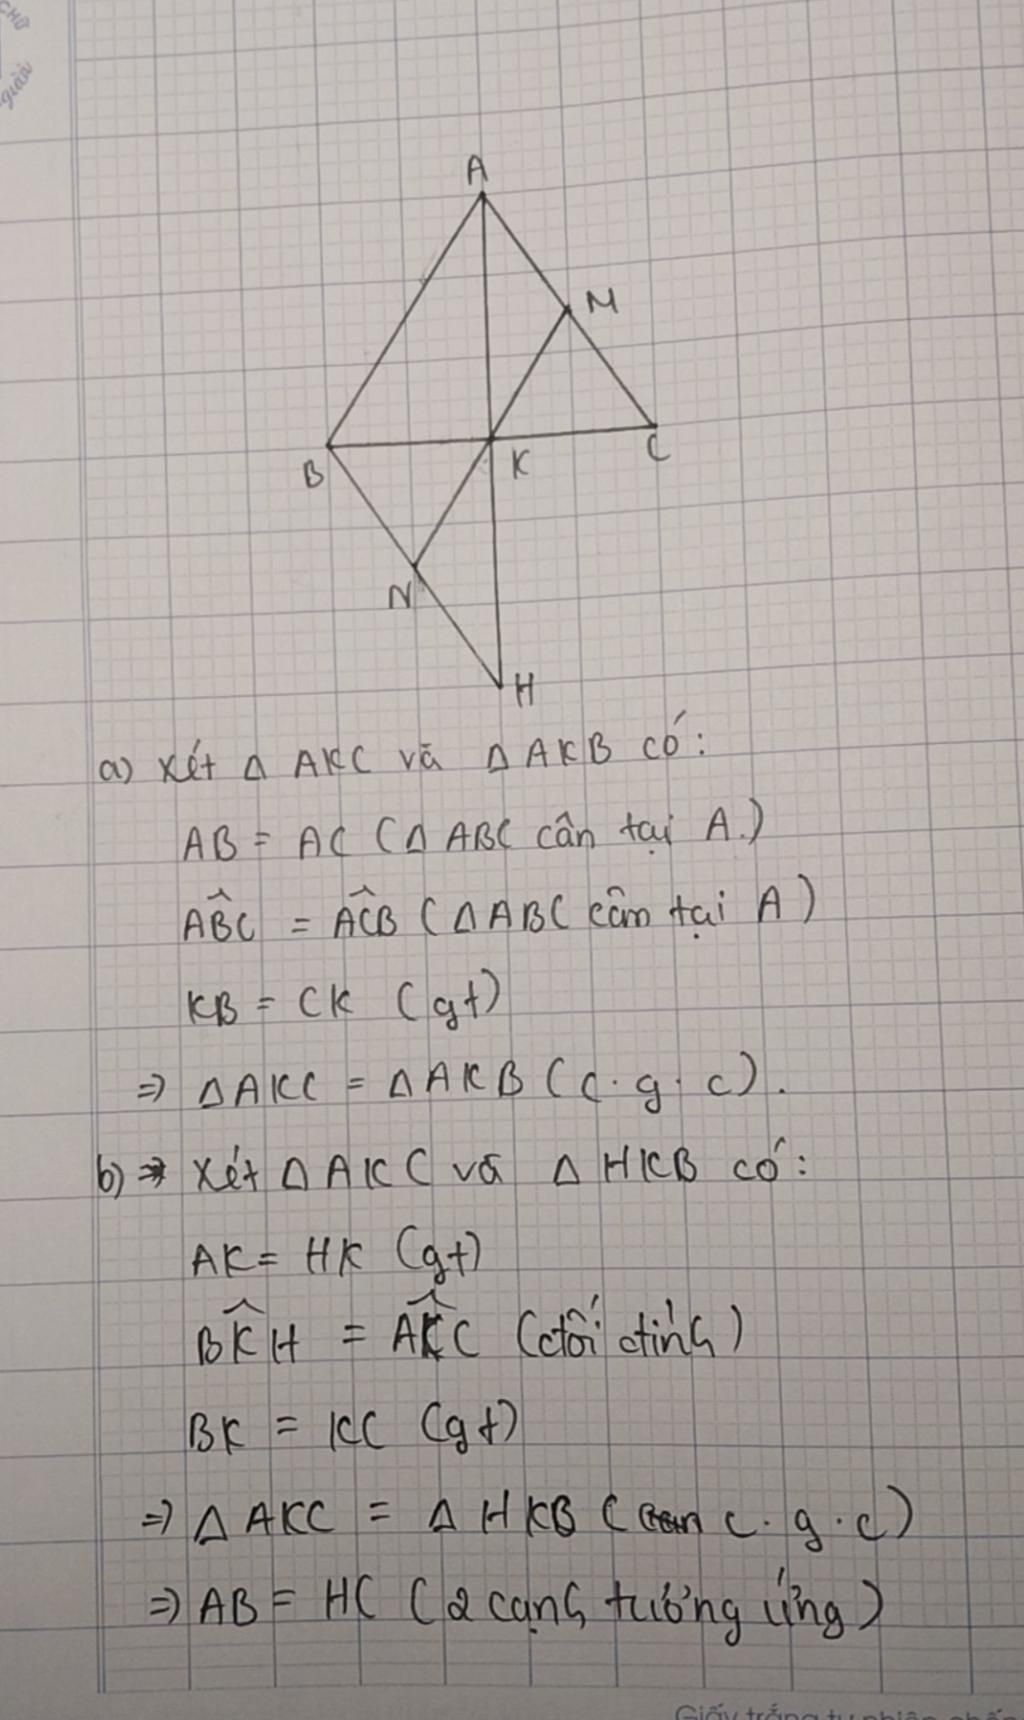 CHỮ
giản
A
M
B
K
C
N
H
a) Xét Δ AKC và Δ AKB có:
AB = AC (Δ ABC cân tại A.)
ABC̑ = ACB̑ (Δ ABC cân tại A)
KB = CK (gt)
=> Δ AKC = Δ AKB (c.g.c).
b) Xét Δ AKC và Δ HKB có:
AK = HK (gt)
BK̂H = AK̂C (đối đỉnh)
BK = KC (gt)
=> Δ AKC = Δ HKB (c.g.c)
=> AB = HC (2 cạnh tướng ứng)